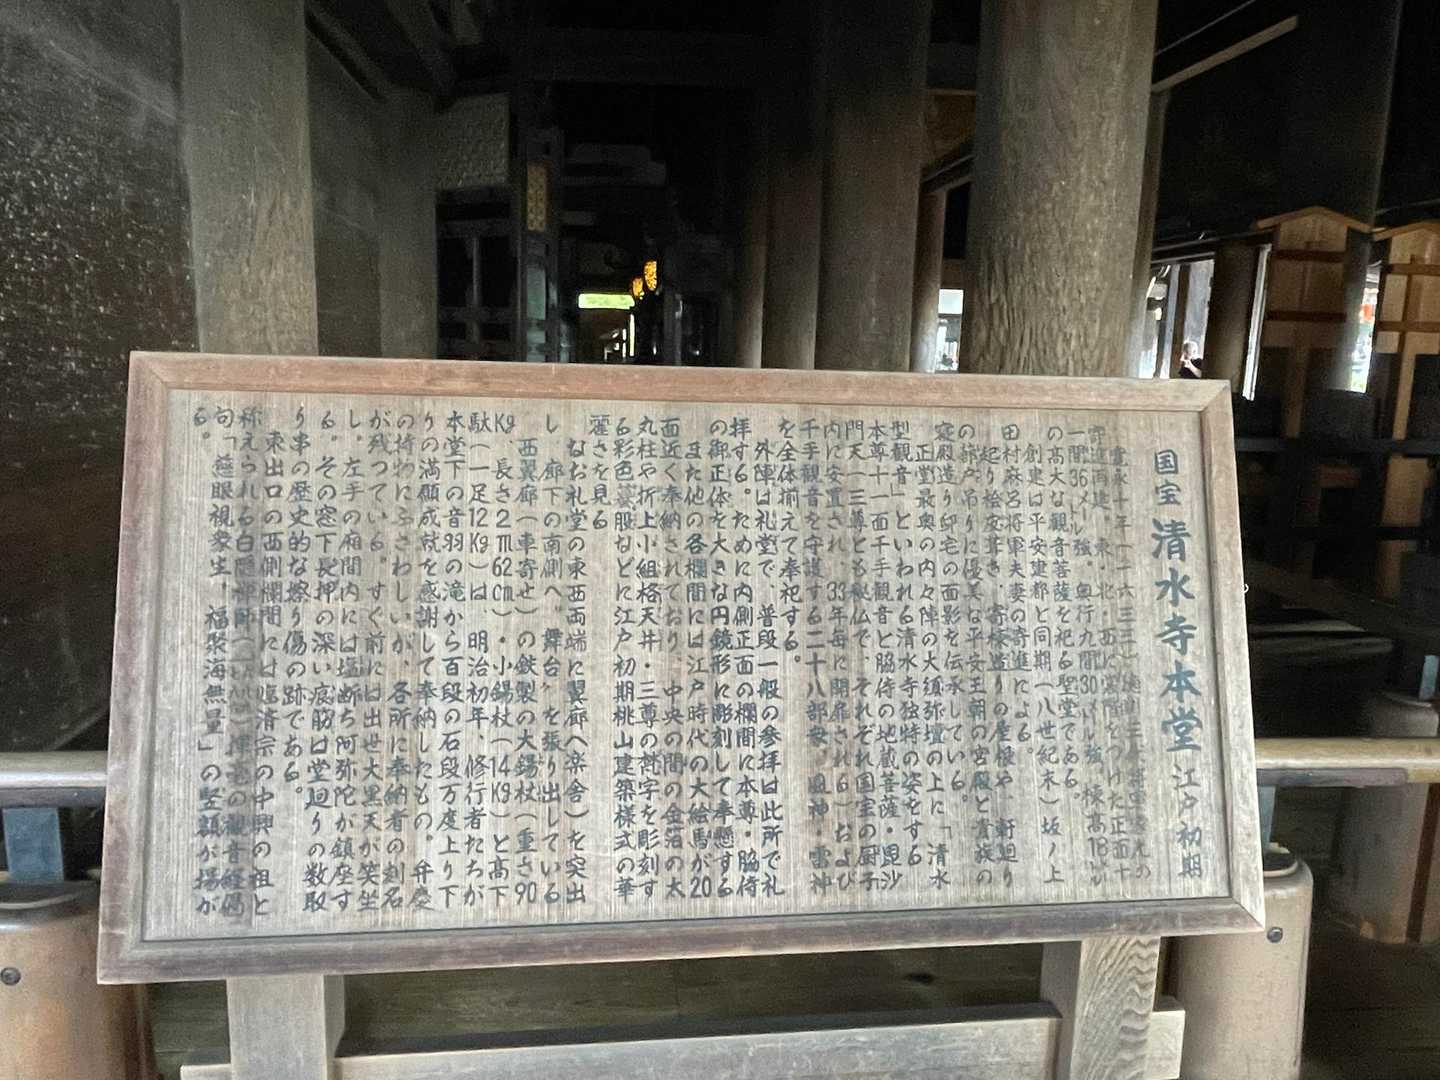 国宝 清水寺本堂 江戸初期
寛永十年(一六三三)徳川三代将軍家光の
寄進再建。東・北・西に裳階をつけた正面十
一間36メートル強、奥行九間30メートル強、棟高18メートル
の高大な観音菩薩を祀る聖堂である。
創建は平安建都と同期(八世紀末)坂ノ上
田村麻呂将軍夫妻の寄進による。
起り桧皮葺き、寄棟造りの屋根や、軒廻り
の蔀戸吊りに優美な平安王朝の宮殿と貴族の
寝殿造り邸宅の面影を伝承している。
正堂最奥の内々陣の大須弥壇の上に「清水
型観音」といわれる清水寺独特の姿をする
本尊十一面千手観音と脇侍の地蔵菩薩・毘沙
門天(三尊とも秘仏で、それぞれ国宝の厨子
内に安置され、33年毎に開扉される)および
千手観音を守護する二十八部衆、風神・雷神
を全体揃えて奉祀する。
外陣は礼堂で、普段一般の参拝は此所で礼
拝する。ために内側正面の欄間に本尊・脇侍
の御正体を大きな円鏡形に彫刻して奉懸する
また他の各欄間には江戸時代の大絵馬が20
面近く奉納されており、中央の間の金箔の太
丸柱や折上小組格天井・三尊の梵字を彫刻す
る彩色蟇股などに江戸初期桃山建築様式の華
麗さを見る
なお礼堂の東西両端に翼廊(楽舎)を突出
し、廊下の南側へ〝舞台〟を張り出している
西翼廊(車寄せ)の鉄製の大錫杖(重さ90
Kg、長さ2m62cm)・小錫杖(14Kg)と高下
駄(一足12Kg)は、明治初年、修行者たちが
本堂下の音羽の滝から百段の石段万度上り下
りの満願成就を感謝して奉納したもの。弁慶
の持物にふさわしいが、各所に奉納者の刻名
が残っている。すぐ前には出世大黒天が笑坐
し。左手の廂間内には塩断ち阿弥陀が鎮座す
る。その窓下長押の深い痕筋は堂廻りの数取
り串の歴史的な擦り傷の跡である。
東出口の西側欄間には臨済宗の中興の祖と
称えられる白隠禅師の観音経偈
句「慈眼視衆生、福聚海無量」の竪額が揚が
る。